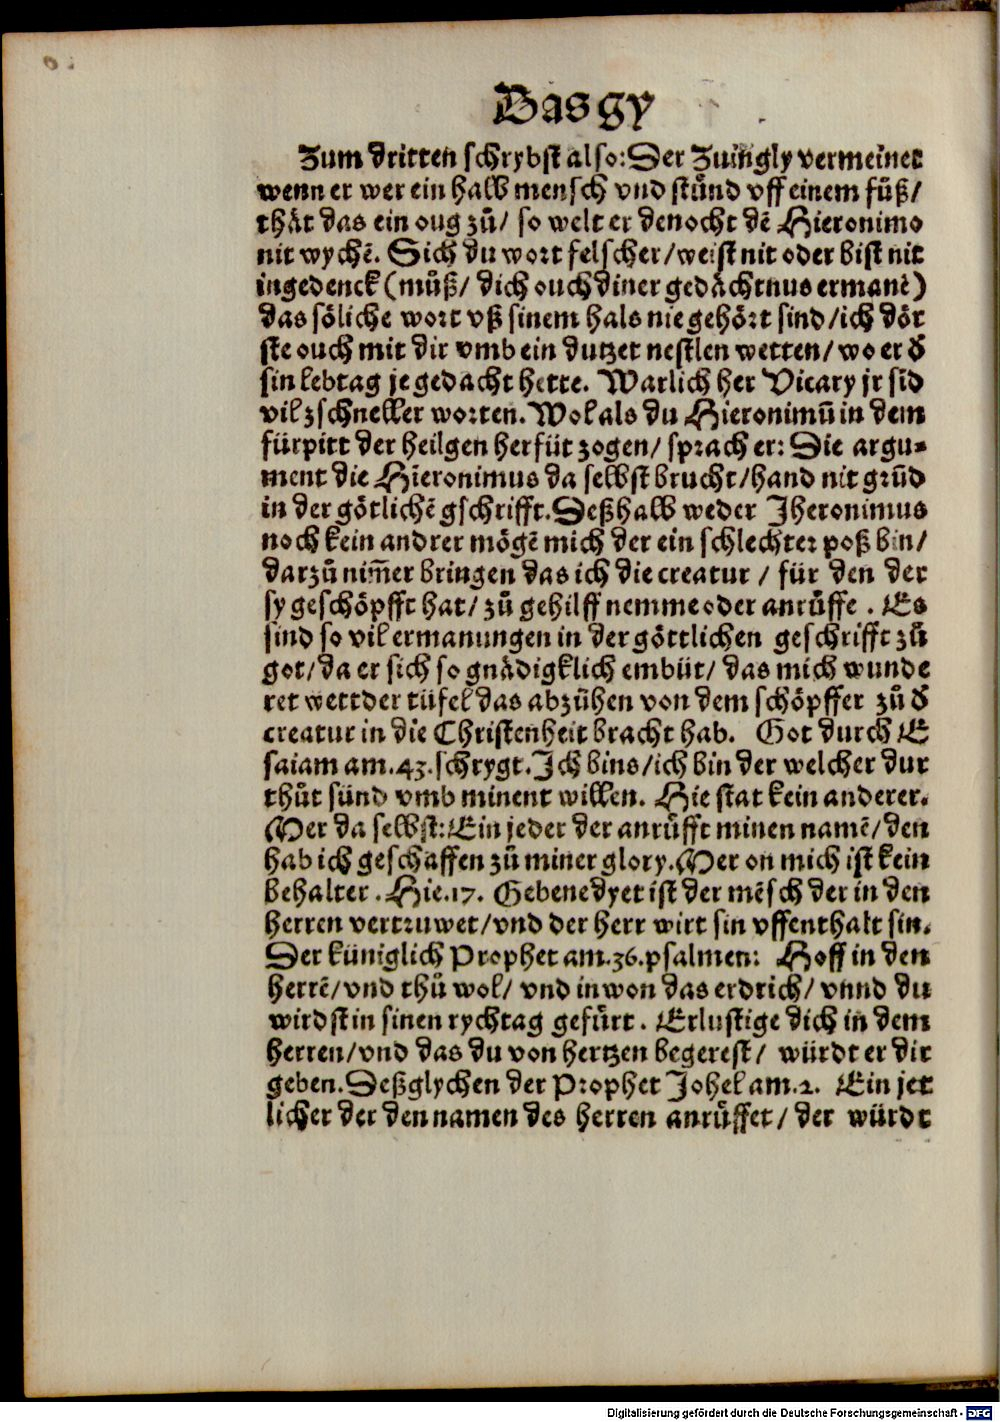 Das gy
Zum dritten schrybst also: Der Zuingly vermeinet
wenn er wer ein halb mensch vnd stünd vff einem fuͦß/
thaͤt das ein oug zuͦ/ so welt er denocht dē Hieronimo
nit wychē. Sich du wort felscher/weist nit oder bist nit
ingedenck (muͦß/ dich ouch diner gedaͤchtnus ermanē)
das soͤliche wort vß sinem hals nie gehoͤrt sind/ich doͤr
ste ouch mit dir vmb ein dutzet nestlen wetten/ wo er d̕
sin lebtag je gedacht hette. Warlich her Vicary jr sīd
vil zschneller worten. Wol als du Hieronimū in dem
fürpitt der heilgen herfür zogen/ sprach er: Die argu⸗
ment die Hieronimus da selbst brucht/hand nit grūd
in der goͤtlichē gschrifft. Deßhalb weder Jheronimus
noch kein andrer moͤgē mich der ein schlechter poß bin/
darzuͦ nim̄er bringen das ich die creatur / für den der
sy geschoͤpfft hat/ zuͦ gehilff nemme oder anruͤffe . Es
sind so vil ermanungen in der goͤttlichen geschrifft zuͦ
got/ da er sich so gnaͤdigklich embüt/ das mich wunde
ret wett der tüfel das abzühen von dem schoͤpffer zuͦ d̕
creatur in die Christenheit bracht hab. Got durch E
saiam am .43. schrygt. Ich bins/ich bin der welcher dur
thuͦt sünd vmb minent willen. Hie stat kein anderer.
Mer da selbst: Ein jeder der anruͤfft minen namē/ den
hab ich geschaffen zuͦ miner glory. Mer on mich ist kein
behalter . Hie.17. Gebenedyet ist der mēsch der in den
herren vertruwet/vnd der herr wirt sin vffenthalt sin.
Der küniglich Prophet am .36. psalmen: Hoff in den
herrē/ vnd thuͦ wol/ vnd inwon das erdrich/ vnnd du
wirdst in sinen rychtag gefuͤrt . Erlustige dich in dem
herren/vnd das du von hertzen begerest/ würdt er dir
geben. Deßglychen der Prophet Johel am .2. Ein jet
licher der den namen des herren anruͤffet/ der würdt
Digitalisierung gefördert durch die Deutsche Forschungsgemeinschaft - DFG